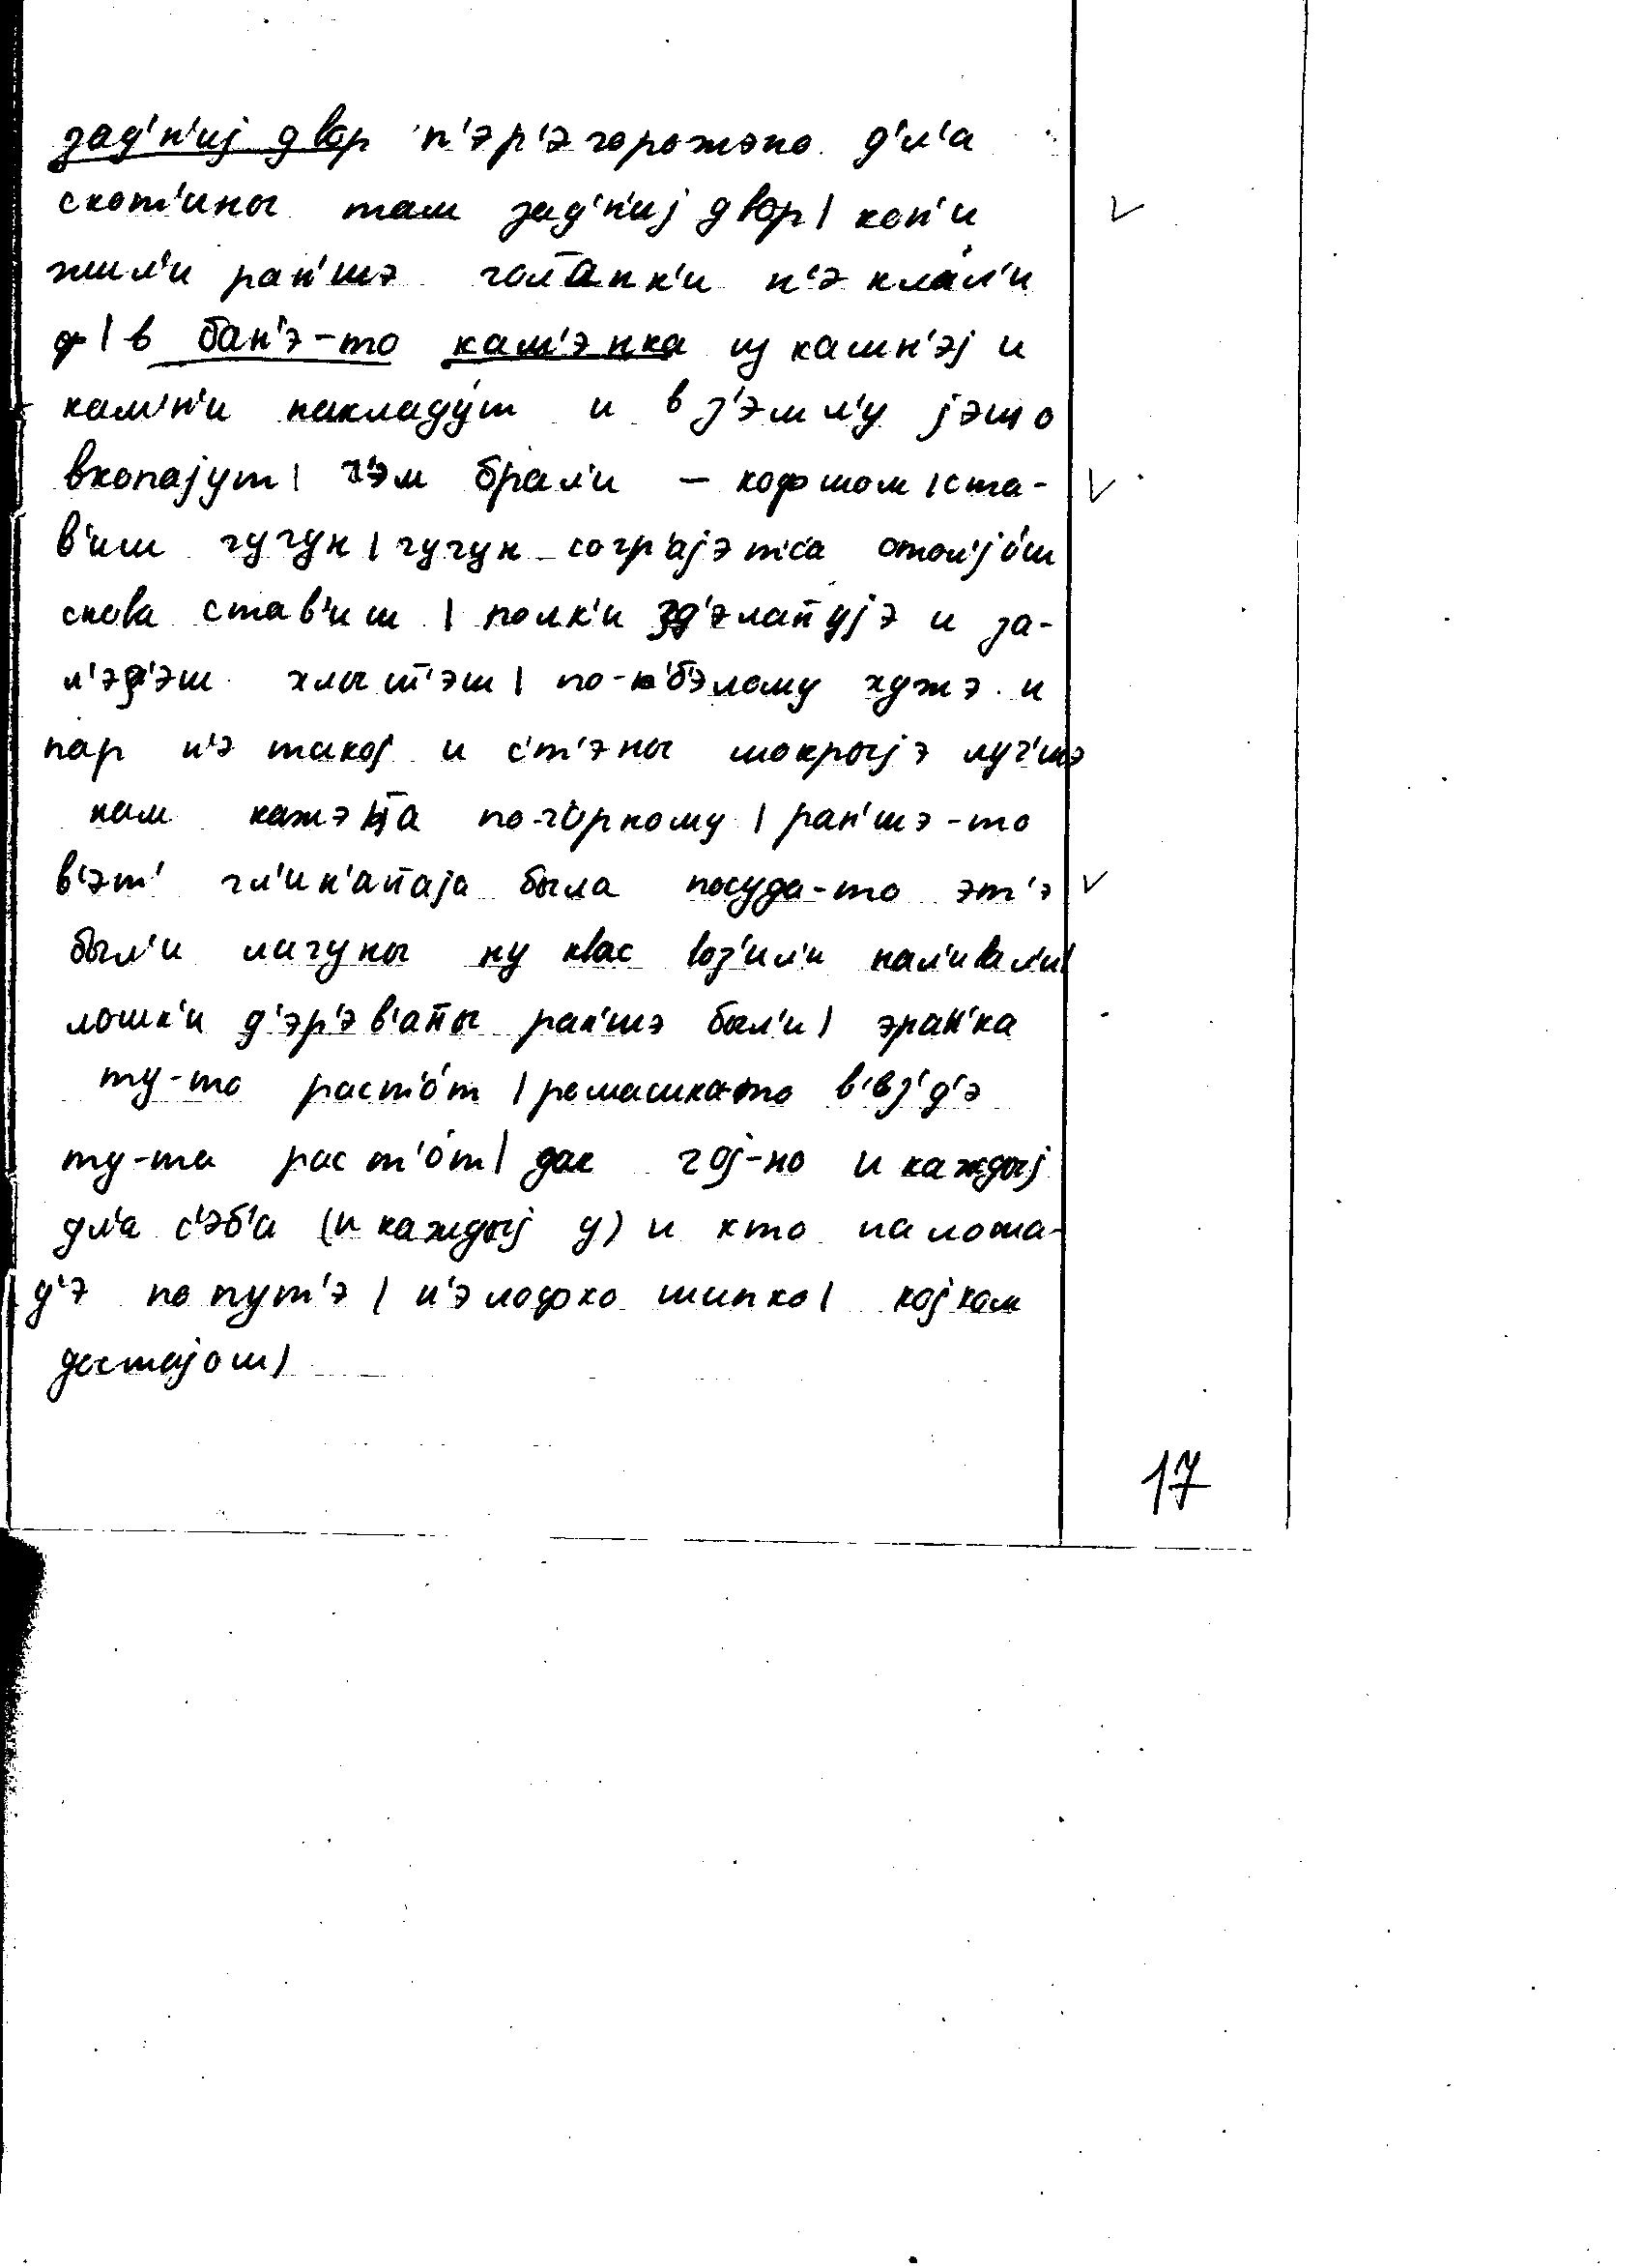 зад'н'иj двор п'эр'эгорожэно д'л'а
скот'ины там зад'н'иj двор| кон'и
жыл'и ран'шэ голāнк'и н'э клáл'и
| в бан'э-то кам'энка из камн'эj и
кам'н'и накладу́т и в з'эмл'у jэшо
вкопаjут| ч'эм брал'и – кофшом | ста-
в'иш чугун | чугун согр'аjэтс'а отол'jóш
снова став'иш | полк'и и за-
л'эз'эш хлышт'эш | по-б'элому хужэ и
пар н'э такоj и с'т'эны мокрыjэ луч'шэ
нам кажэца̄ по-ч'о́рному | ран'шэ-то
в'эт' гл'ин'ан̄аjа была посуда-то эт'э
был'и лагуны ну квас воз'ил'и нал'ивал'и|
лошк'и д'эр'эв'ан̄ы ран'шэ был'и | эран'ка
ту-то раст'óт | ромашка-то в'изд'э
ту-та раст'óт | дак гоj-но и каждыj
дл'а с'эб'а (и каждыj у) и кто на лоша-
д'э по пут'э | н'элофко шыпко | коjкам
достаjош |
17